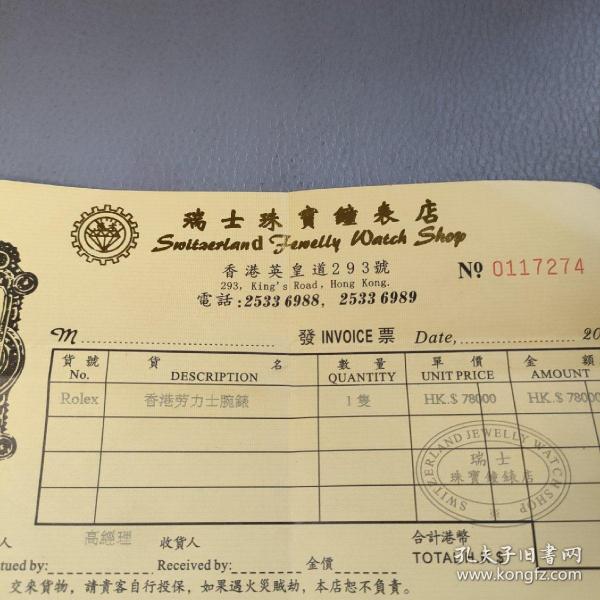 瑞士珠寶鐘表店
Switzerland Jewelly Watch Shop
香港英皇道293號
293, King's Road, Hong Kong.
電話:2533 6988, 2533 6989
Nº 0117274
M 發 INVOICE 票 Date, 20
貨號 貨名 數量 單價 金額
No. DESCRIPTION QUANTITY UNIT PRICE AMOUNT
Rolex 香港劳力士腕錶 1隻 HK.$ 78000 HK.$ 78000
SWITZERLAND JEWELLY WATCH SHOP
瑞士
珠寶鐘錶店
人 高經理 收貨人 合計港幣
tued by: Received by: 金價 TOTAL H.K.$
交來貨物，請貴客自行投保，如果遇火災賊劫，本店恕不負責。
孔夫子旧书网
www.kongfz.com